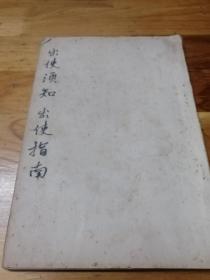 出使须知 出使指南